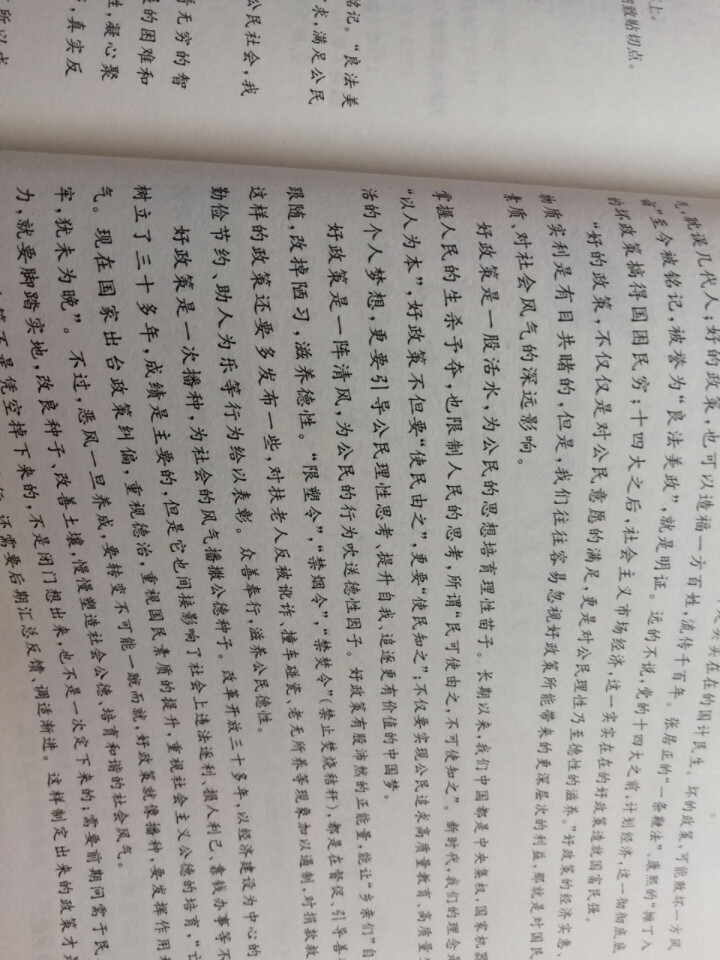 上。
细致贴切点。
铭记。“良法美
求，满足公民
公民社会，我
无穷的智
的困难和
，凝心聚
，真实反
所以
实实在在的国计民生。坏的政策，可能败坏一方风
，就误几代人；好的政策，也可以造福一方百姓，流传千百年。张居正的“一条鞭法”、康熙的“摊丁入
亩”至今被铭记，被誉为“良法美政”，就是明证。远的不说，党的十四大之前，计划经济，这一彻彻底底
的坏政策搞得国困民穷；十四大之后，社会主义市场经济，这一实实在在的好政策造就国富民强。
“好的政策，不仅仅是对公民意愿的满足，更是对公民理性乃至德性的滋养。”好政策的经济实惠、
物质实利是有目共睹的，但是，我们往往容易忽视好政策所能带来的更深层次的利益，那就是对国民
素质、对社会风气的深远影响。
好政策是一股活水，为公民的思想培育理性苗子。长期以来，我们中国都是中央集权，国家机器
掌握人民的生杀予夺，也限制人民的思考，所谓“民可使由之，不可使知之”。新时代，我们的理念是
“以人为本”，好政策不但要“使民由之”，更要“使民知之”；不仅要实现公民追求高质量教育、高质量生
活的个人梦想，更要引导公民理性思考、提升自我、追逐更有价值的中国梦。
好政策是一阵清风，为公民的行为吹送德性因子。好政策有股沛然的正能量，能让“乡亲们”自
跟随，改掉陋习，滋养德性。“限塑令”，“禁烟令”，“禁焚令”（禁止焚烧秸秆），都是在督促、引导善
这样的政策还要多发布一些，对扶老人反被讹诈、撞车碰瓷、老无所养等现象加以遏制，对捐款救
勤俭节约、助人为乐等行为给以表彰。众善奉行，滋养公民德性。
好政策是一次播种，为社会的风气播撒公德种子。改革开放三十多年，以经济建设为中心的
树立了三十多年，成绩是主要的，但是它也间接影响了社会上违法逐利、损人利己、靠钱办事等不
气。现在国家出台政策纠偏，重视德治，重视国民素质的提升，重视社会主义公德的培育，“亡
牢，犹未为晚”。不过，恶风一旦养成，要转变不可能一蹴而就，好政策就像播种，要发挥作用
力，就要脚踏实地，改良种子、改善土壤，慢慢塑造社会公德，培育和谐的社会风气。
不是凭空掉下来的，不是闭门想出来，也不是一次定下来的；需要前期问需于民
还需要后期汇总反馈、调适渐进。这样制定出来的政策才